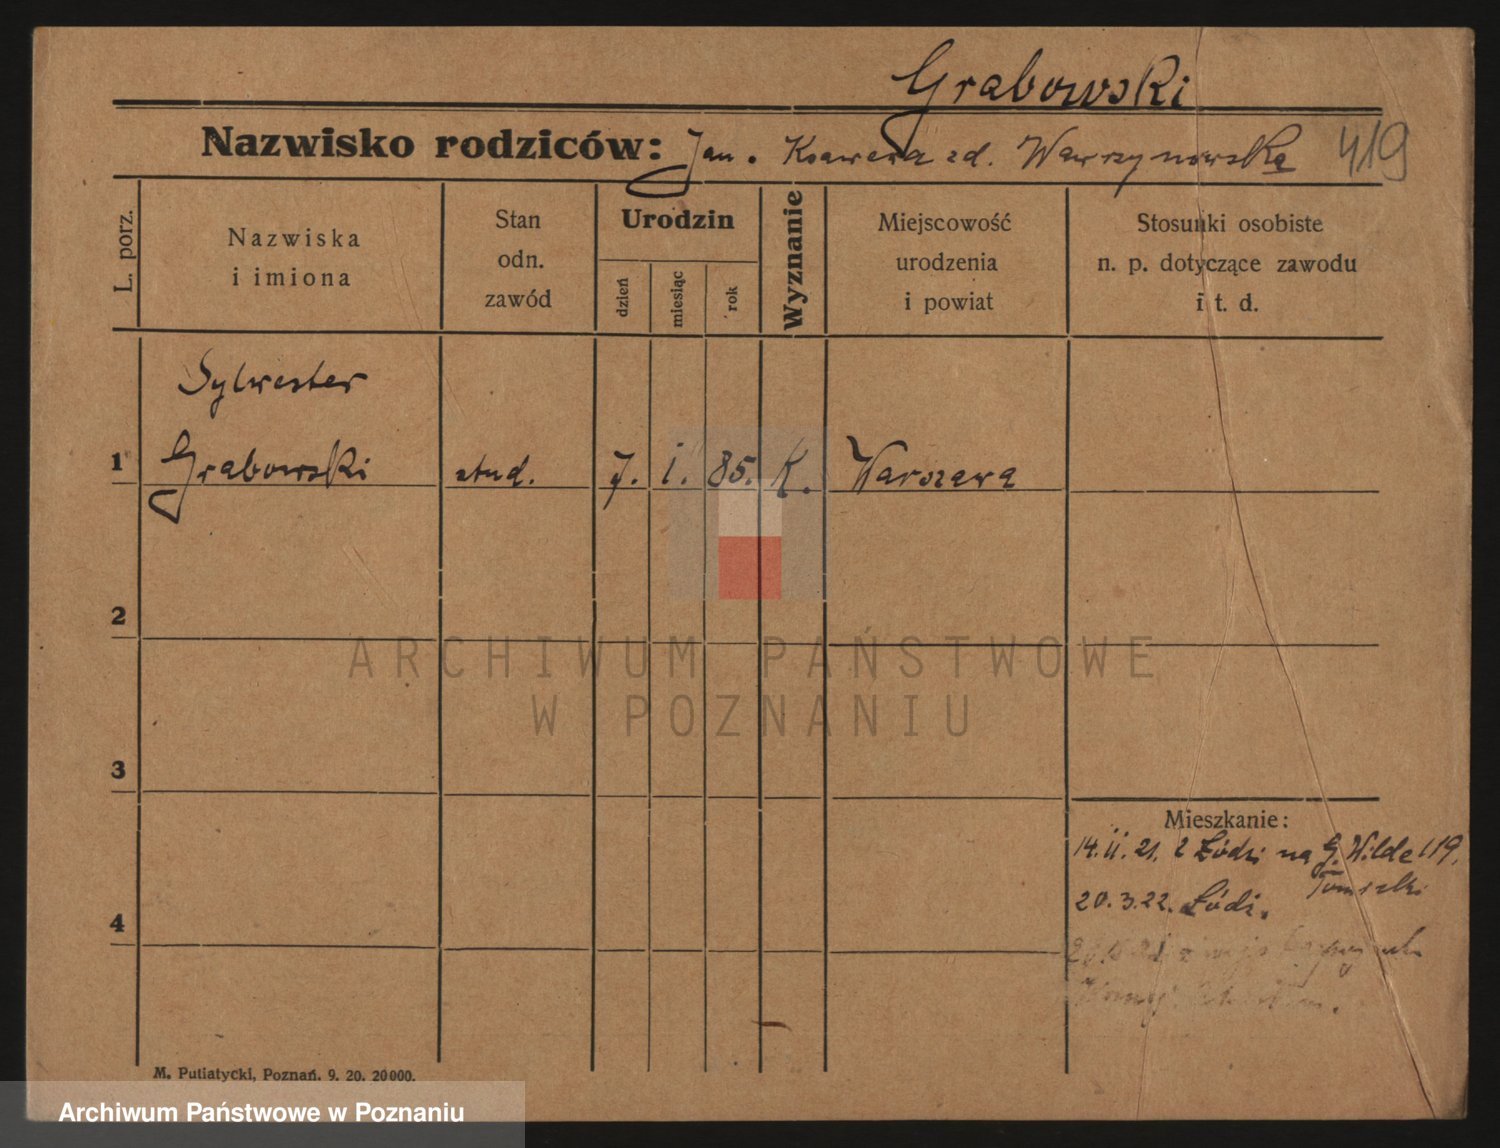 Grabowski
Nazwisko rodziców: Jan. Ksawera zd. Wawrzynowska 419
L. porz.
Nazwiska
i imiona
Stan
odn.
zawód
Urodzin
dzień
miesiąc
rok
Wyznanie
Miejscowość
urodzenia
i powiat
Stosunki osobiste
n. p. dotyczące zawodu
i t. d.
Sylwester
1 Grabowski stud. 7. i. 85. K. Warszawa
2
ARCHIWUM PAŃSTWOWE
W POZNANIU
3
Mieszkanie:
14. ii. 21. z Łódzi na G. Wilde 119.
Tomicki
20. 3. 22. Łódź.
4
M. Putiatycki, Poznań. 9. 20. 20000.
Archiwum Państwowe w Poznaniu